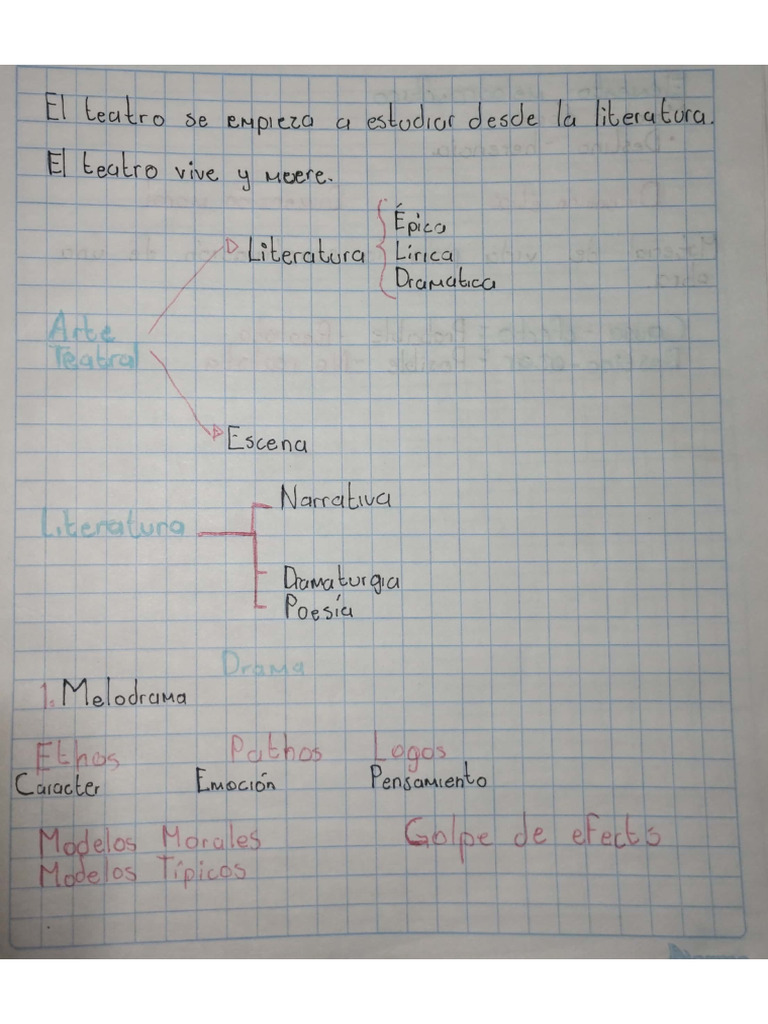 El teatro se empieza a estudiar desde la literatura.
El teatro vive y muere.
Literatura
Épica
Lírica
Dramatica
Arte
Teatral
Escena
Literatura
Narrativa
Dramaturgia
Poesía
Drama
1. Melodrama
Ethos Pathos Logos
Caracter Emoción Pensamiento
Modelos Morales Golpe de efects
Modelos Típicos